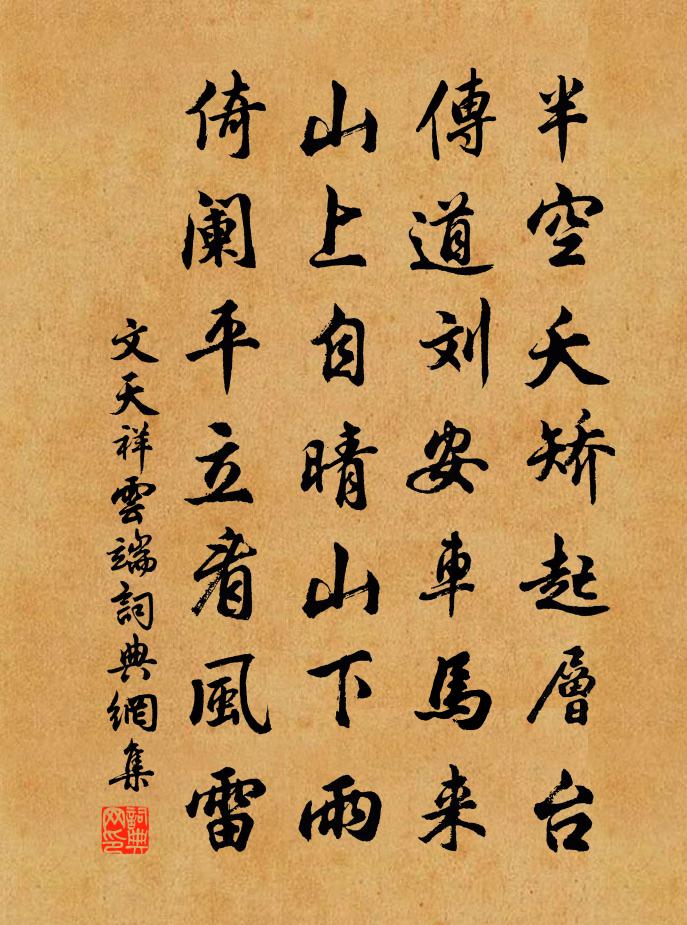 半空夭矯起層台
傳道刘安車馬来
山上自晴山下雨
倚阑平立看風雷
文天祥雲端詞典網集
詞典网印